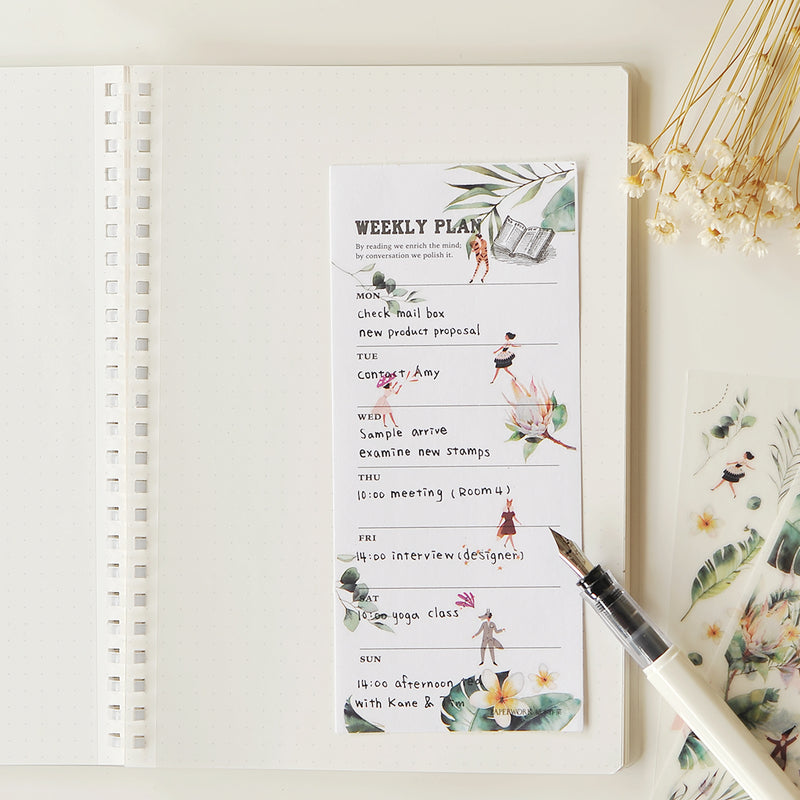 WEEKLY PLAN
By reading we enrich the mind;
by conversation we polish it.
MON
check mail box
new product proposal
TUE
contact Amy
WED
Sample arrive
examine new stamps
THU
10:00 meeting (Room 4)
FRI
14:00 interview (designer)
SAT
10:00 yoga class
SUN
14:00 afternoon tea
with Kane & Tim